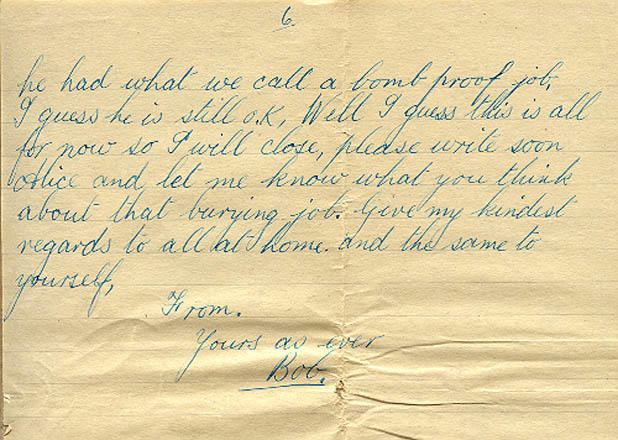 6.
he had what we call a bomb proof job.
I guess he is still O.K, Well I guess this is all
for now so I will close, please write soon
Alice and let me know what you think
about that burying job. Give my kindest
regards to all at home. and the same to
yourself,
From.
Yours as ever
Bob.